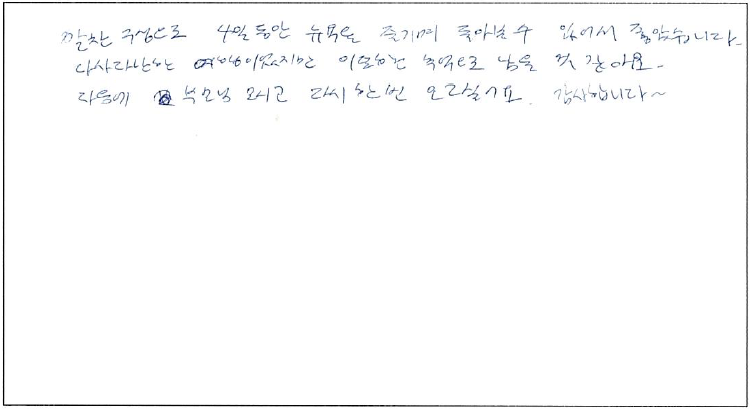 알찬 구성으로 4일 동안 뉴욕을 즐기며 돌아볼 수 있어서 좋았습니다.
다사다난한 여행이었지만 이 또한 추억으로 남을 것 같아요.
다음에 부모님 모시고 다시 한번 오고싶어요. 감사합니다~